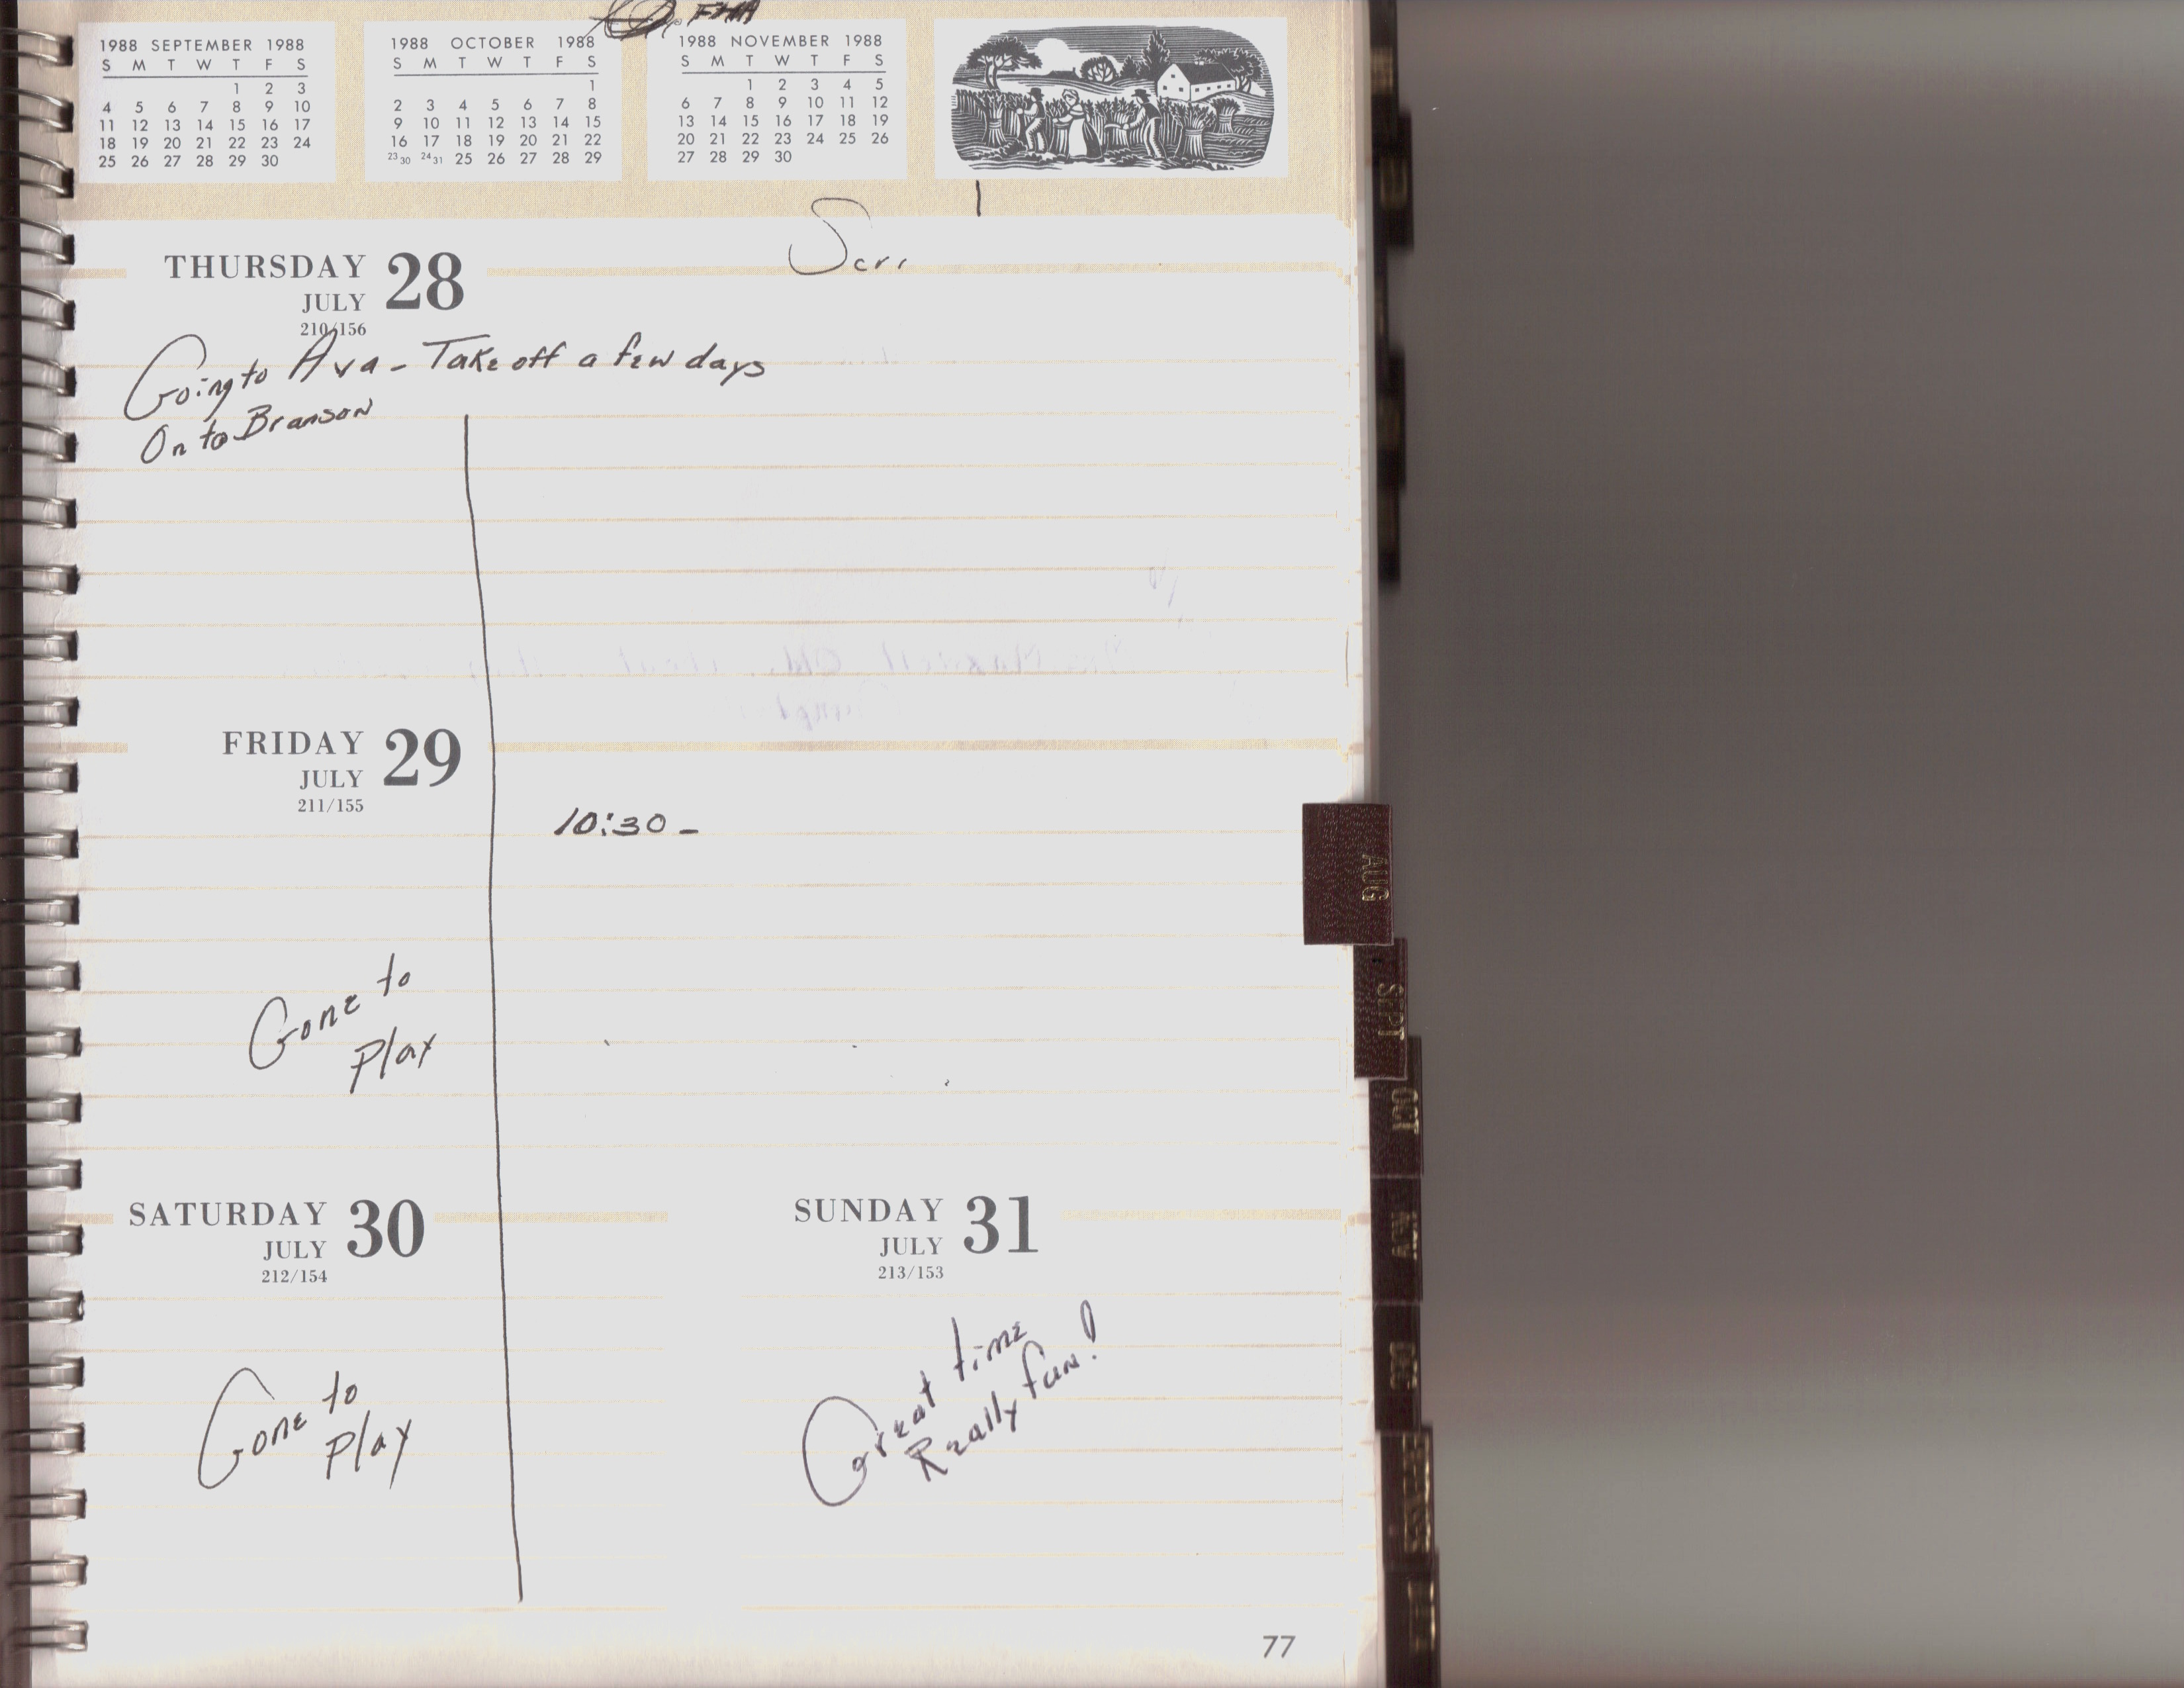 FHA
1988 SEPTEMBER 1988
S M T W T F S
1 2 3
4 5 6 7 8 9 10
11 12 13 14 15 16 17
18 19 20 21 22 23 24
25 26 27 28 29 30
1988 OCTOBER 1988
S M T W T F S
1
2 3 4 5 6 7 8
9 10 11 12 13 14 15
16 17 18 19 20 21 22
23 30 24 31 25 26 27 28 29
1988 NOVEMBER 1988
S M T W T F S
1 2 3 4 5
6 7 8 9 10 11 12
13 14 15 16 17 18 19
20 21 22 23 24 25 26
27 28 29 30
THURSDAY 28
JULY
210/156
Going to Ava - Take off a few days
On to Branson
FRIDAY 29
JULY
211/155
10:30 -
Gone to
play
SATURDAY 30
JULY
212/154
Gone to
play
SUNDAY 31
JULY
213/153
Great time
Really fun!
AUG
SEPT
OCT
NOV
DEC
77